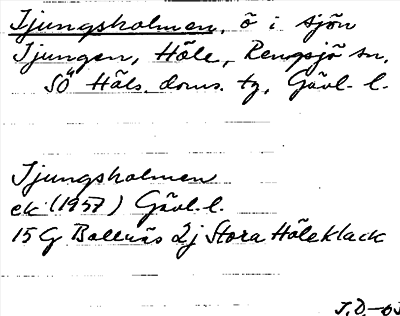 Tjungsholmen, ö i sjön
Tjungen, Höle, Rengsjö sn,
SÖ Häls. doms. tg, Gävl. l.
Tjungsholmen
ek (1957) Gävl. l.
15G Bollnäs 2j Stora Höleklack
J.D.-63